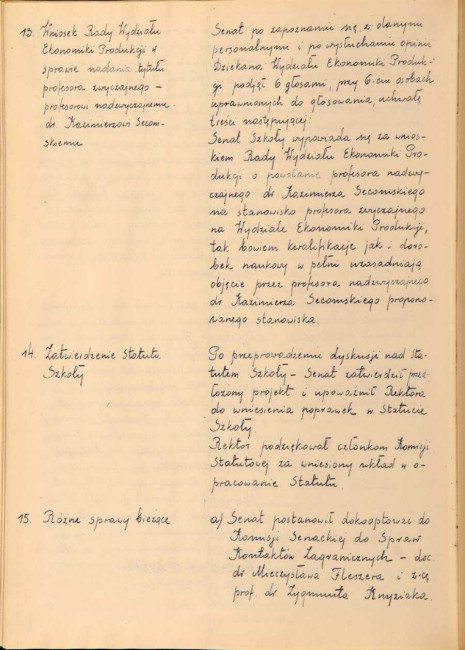 13. Wniosek Rady Wydziału
Ekonomiki Produkcji w
sprawie nadania tytułu
profesora zwyczajnego -
profesorowi nadzwyczajnemu
dr. Kazimierzowi Secom-
skiemu
Senat po zapoznaniu się z danymi
personalnymi i po wysłuchaniu opinii
Dziekana Wydziału Ekonomiki Produk-
cji podjął 6 głosami, przy 6-ciu osobach
uprawnionych do głosowania, uchwałę
treści następującej:
Senat Szkoły wypowiada się za wnios-
kiem Rady Wydziału Ekonomiki Pro-
dukcji o powołanie profesora nadzwy-
czajnego dr Kazimierza Secomskiego
na stanowisko profesora zwyczajnego
na Wydziale Ekonomiki Produkcji,
tak bowiem kwalifikacje jak i doro-
bek naukowy w pełni uzasadniają
objęcie przez profesora nadzwyczajnego
dr Kazimierza Secomskiego propono-
wanego stanowiska.
14. Zatwierdzenie Statutu
Szkoły
Po przeprowadzeniu dyskusji nad Sta-
tutem Szkoły - Senat zatwierdził przed-
łożony projekt i upoważnił Rektora
do wniesienia poprawek w Statucie
Szkoły.
Rektor podziękował członkom Komisji
Statutowej za wniesiony wkład w o-
pracowanie Statutu.
15. Różne sprawy bieżące
a) Senat postanowił dokooptować do
Komisji Senackiej do Spraw
Kontaktów Zagranicznych - doc
dr Mieczysława Fleszera i z-cę
prof. dr. Zygmunta Knyziaka.